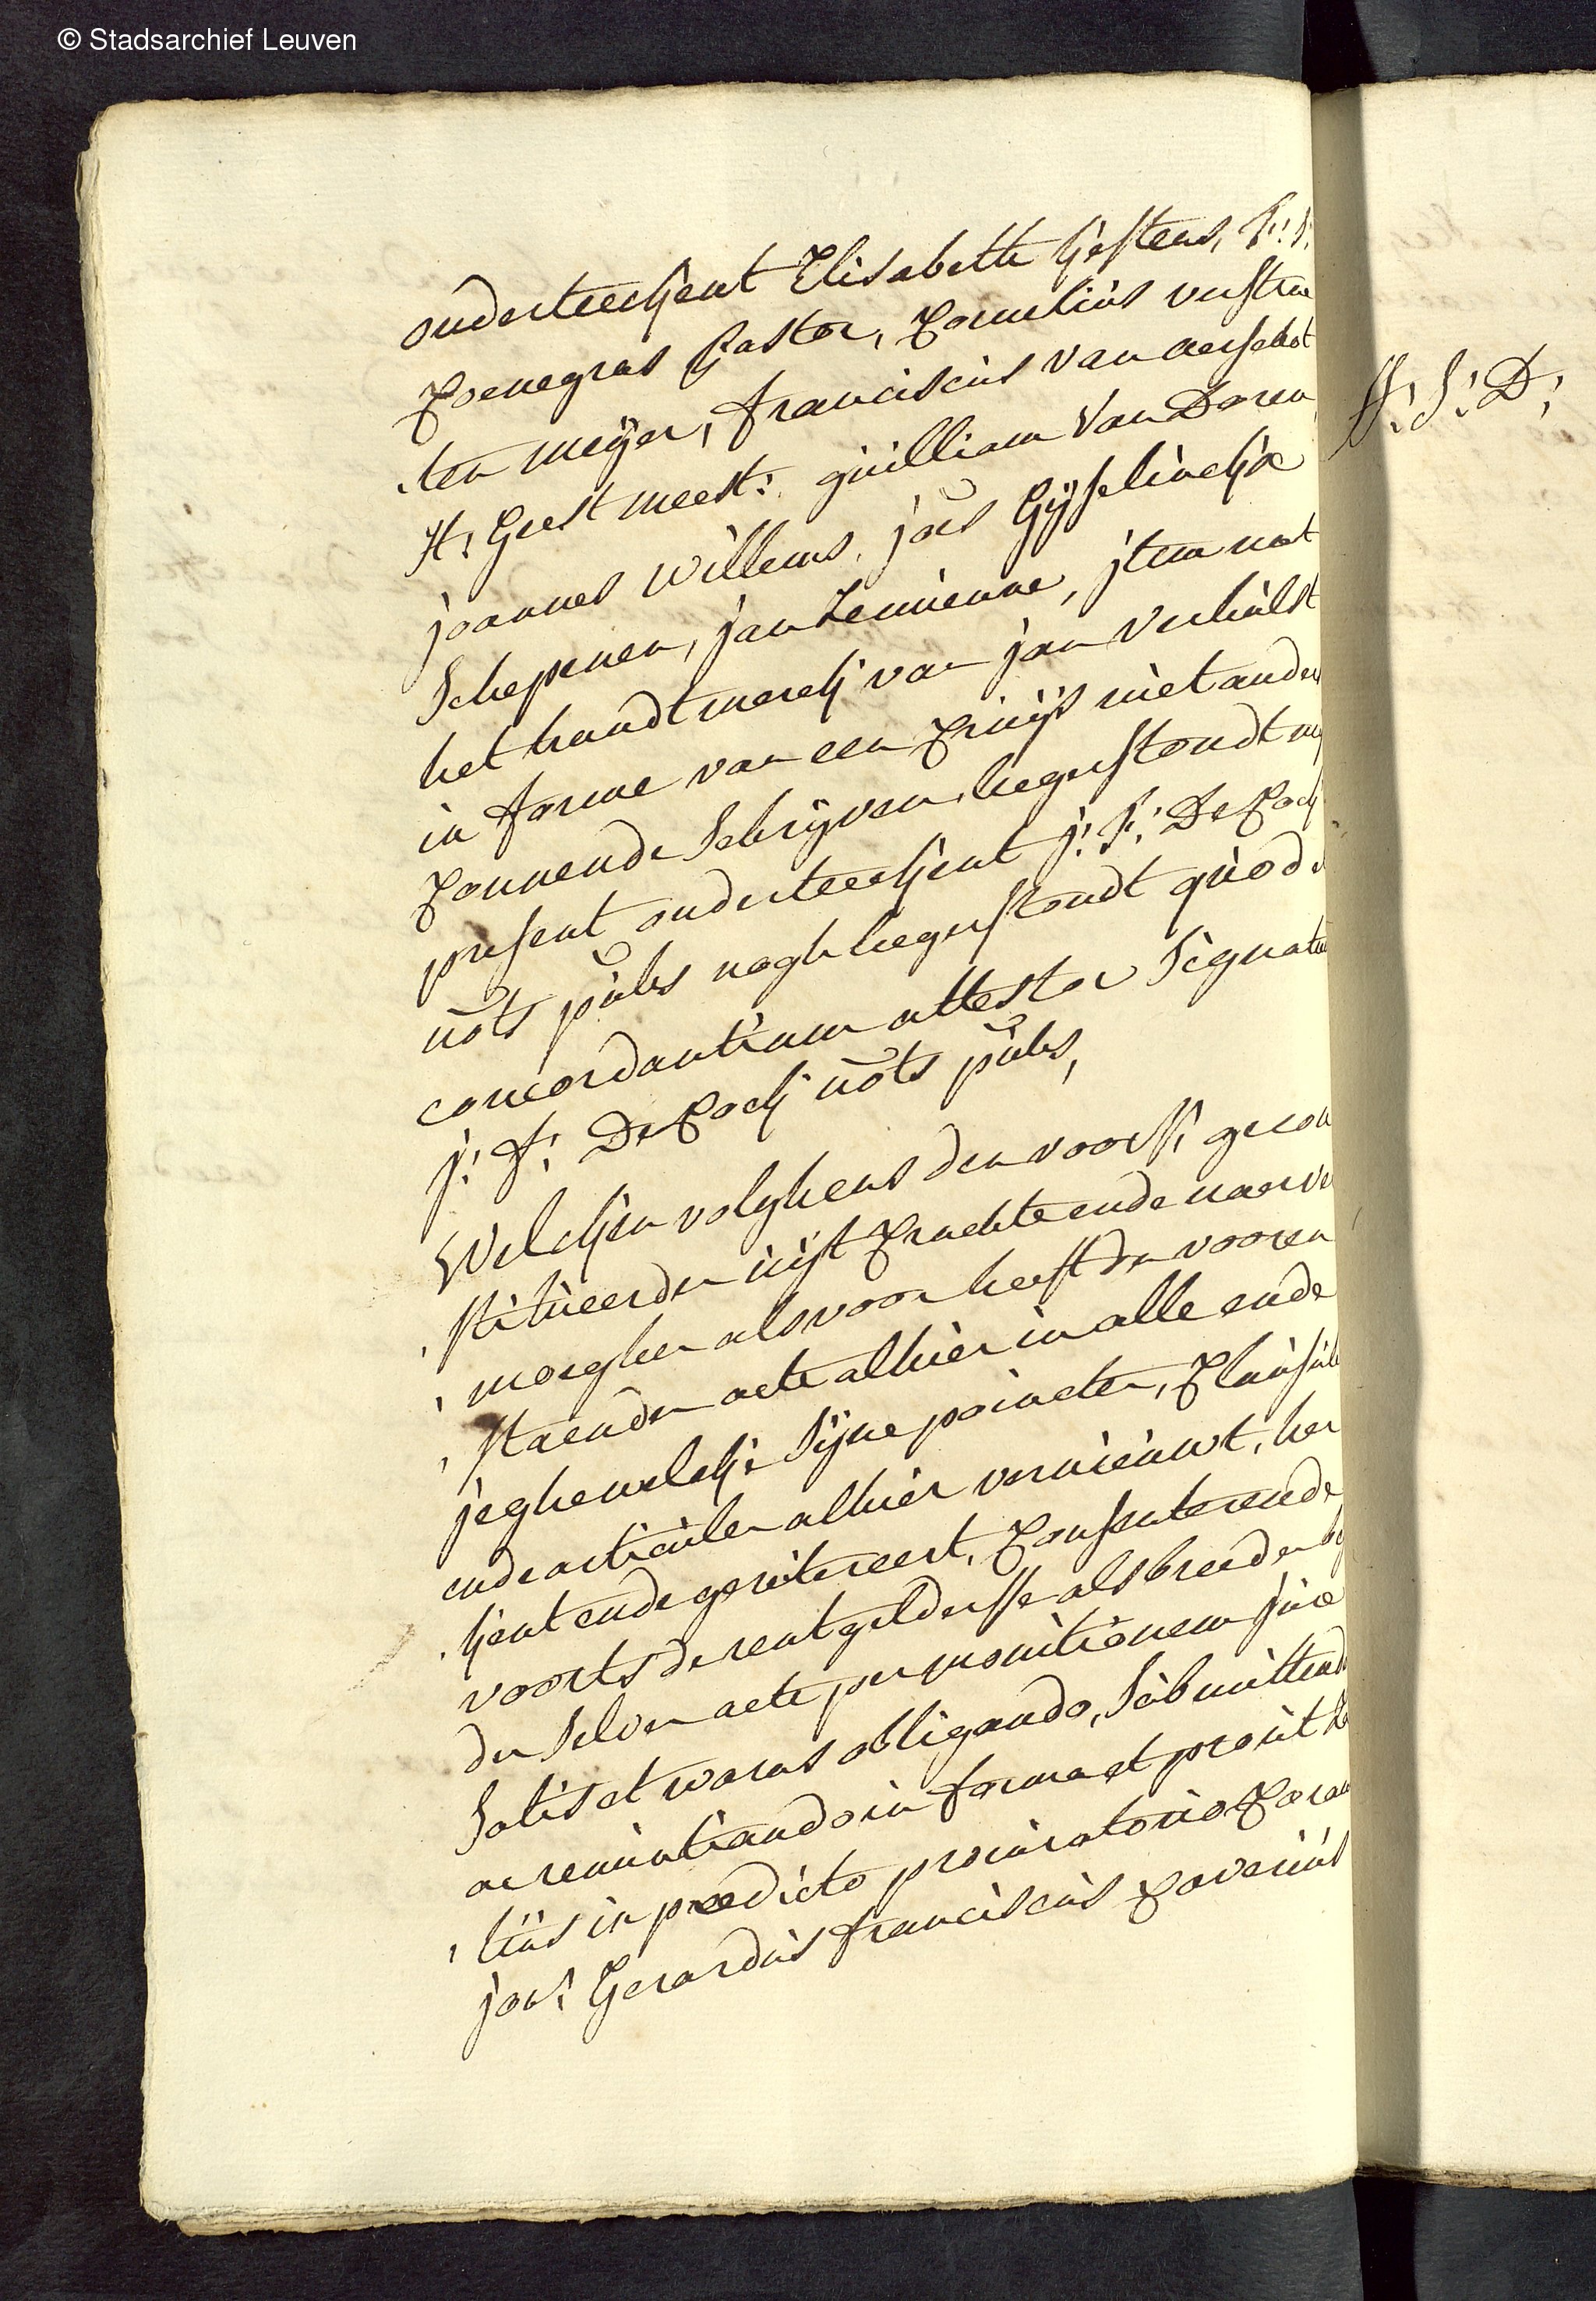 © Stadsarchief Leuven
onderteeckent Elisabeth Gestens,
Coenegras Pastor, Cornelius verstrae
ten meijer, Franciscus van aerschot
H: Geest meest: guilliam van Doren
joannes willems, joēs Gijselinckx
Schepenen, jan Lemienne, item nat
het handtmerck van jan verhulst
in forme van een Cruijs niet anders
Connende schrijven, leegerstondt mij
present onderteeckent j: F: De Cock
nōts pūbs nogh leegerstondt quod
concordantiam attestor Signatu
j: F: De Cock nōts pūbs,
Welcken volghens den voors: gecon
stitueerden uijt Crachte ende naer ver
moghen als voor heeft den vooren
staenden acte alhier in alle ende
jeghewelcke sijne poincten, Clausule
ende articulen alhier vernieuwt, her
kent ende gereitereert, Consenterende
voorts de rentgeldersse als breeder bij
den selven acte per monitionem juxe
satis et waras obligando, submittendo
ac renuntiando in forma et prout
tius in praedicto procuratorio Coram
jor: Gerardus franciscus Xaverius
F: J: D: